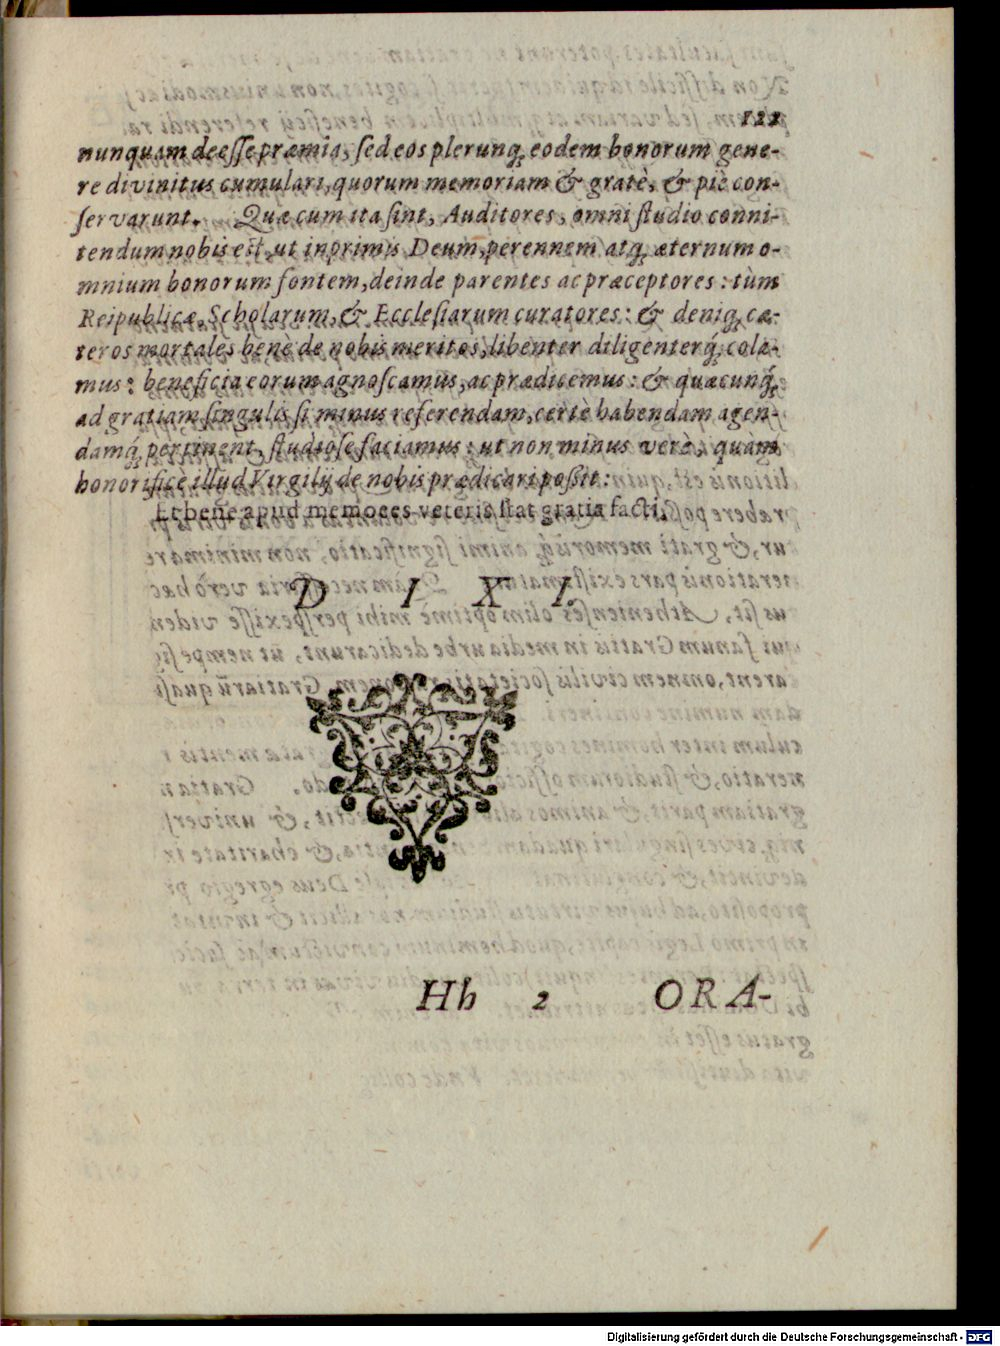 122
nunquam deesse præmia, sed eos plerunq; eodem bonorum gene-
re divinitus cumulari, quorum memoriam & gratè, & piè con-
servarunt. Quæ cum ita sint, Auditores, omni studio conni-
tendum nobis est, ut inprimis Deum, perennem atq; æternum o-
mnium bonorum fontem, deinde parentes ac præceptores: tùm
Reipublicæ, Scholarum, & Ecclesiarum curatores: & deniq; cæ-
teros mortales benè de nobis meritos, libenter diligenterq́; cola-
mus: beneficia eorum agnoscamus, ac prædicemus: & quæcunq́;
ad gratiam singulis si minus referendam, certè habendam agen-
damq́; pertinent, studiose faciamus: ut non minus verè, quàm
honorificè illud Virgilij de nobis prædicari possit:
Et bene apud memores veteris stat gratia facti.
D I X I.
Hh 2 ORA-
Digitalisierung gefördert durch die Deutsche Forschungsgemeinschaft - DFG